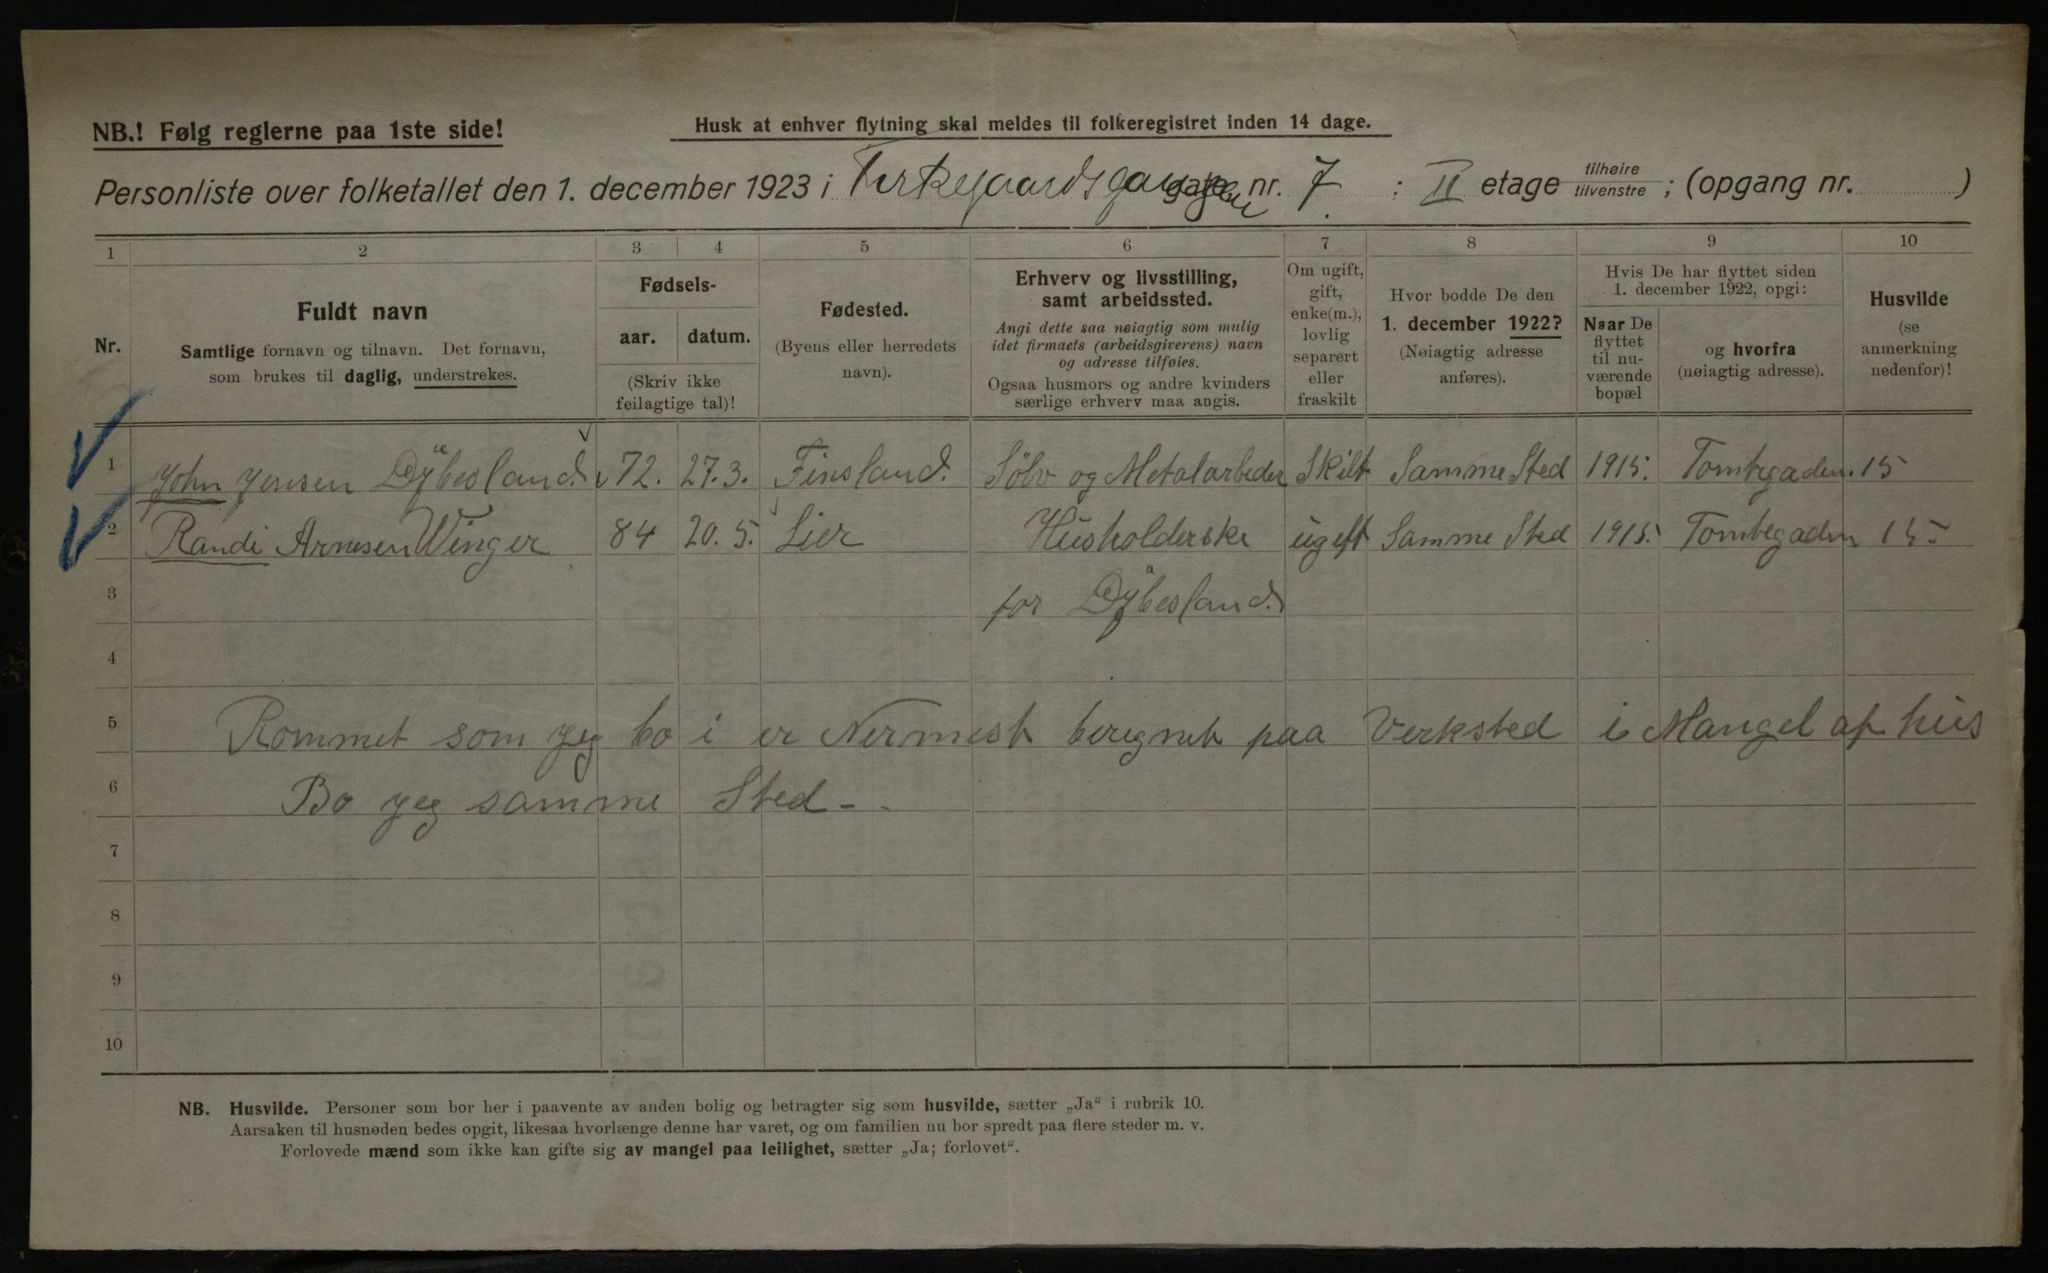 NB.! Følg reglerne paa 1ste side!
Husk at enhver flytning skal meldes til folkeregistret inden 14 dage.
Personliste over folketallet den 1. december 1923 i Kirkegaardsgangen gate nr. 7 : II etage tilhøire tilvenstre ; (opgang nr. )
1 2 3 4 5 6 7 8 9 10
Nr.
Fuldt navn
Samtlige fornavn og tilnavn. Det fornavn,
som brukes til daglig, understrekes.
Fødsels-
aar. datum.
(Skriv ikke
feilagtige tal)!
Fødested.
(Byens eller herredets
navn).
Erhverv og livsstilling,
samt arbeidssted.
Angi dette saa nøiagtig som mulig
idet firmaets (arbeidsgiverens) navn
og adresse tilføies.
Ogsaa husmors og andre kvinders
særlige erhverv maa angis.
Om ugift,
gift,
enke(m.),
lovlig
separert
eller
fraskilt
Hvor bodde De den
1. december 1922?
(Nøiagtig adresse
anføres).
Hvis De har flyttet siden
1. december 1922, opgi:
Naar De
flyttet
til nu-
værende
bopæl
og hvorfra
(nøiagtig adresse).
Husvilde
(se
anmerkning
nedenfor)!
1 John Jensen Dÿbesland. 72. 27.3. Finsland. Sölv og Metalarbeder Skilt Samme Sted 1915. Tomtegaden. 15
2 Randi Arnesen Winger 84 20.5. Lier Husholderske ugift Samme Sted 1915. Tomtegaden 15
3 for Dÿbesland.
4
5 Rommet som jeg bo i er Nermest beregnet paa Verksted i Mangel af hus
6 Bo jeg samme Sted - -
7
8
9
10
NB. Husvilde. Personer som bor her i paavente av anden bolig og betragter sig som husvilde, sætter „Ja“ i rubrik 10.
Aarsaken til husnøden bedes opgit, likesaa hvorlænge denne har varet, og om familien nu bor spredt paa flere steder m. v.
Forlovede mænd som ikke kan gifte sig av mangel paa leilighet, sætter „Ja; forlovet“.